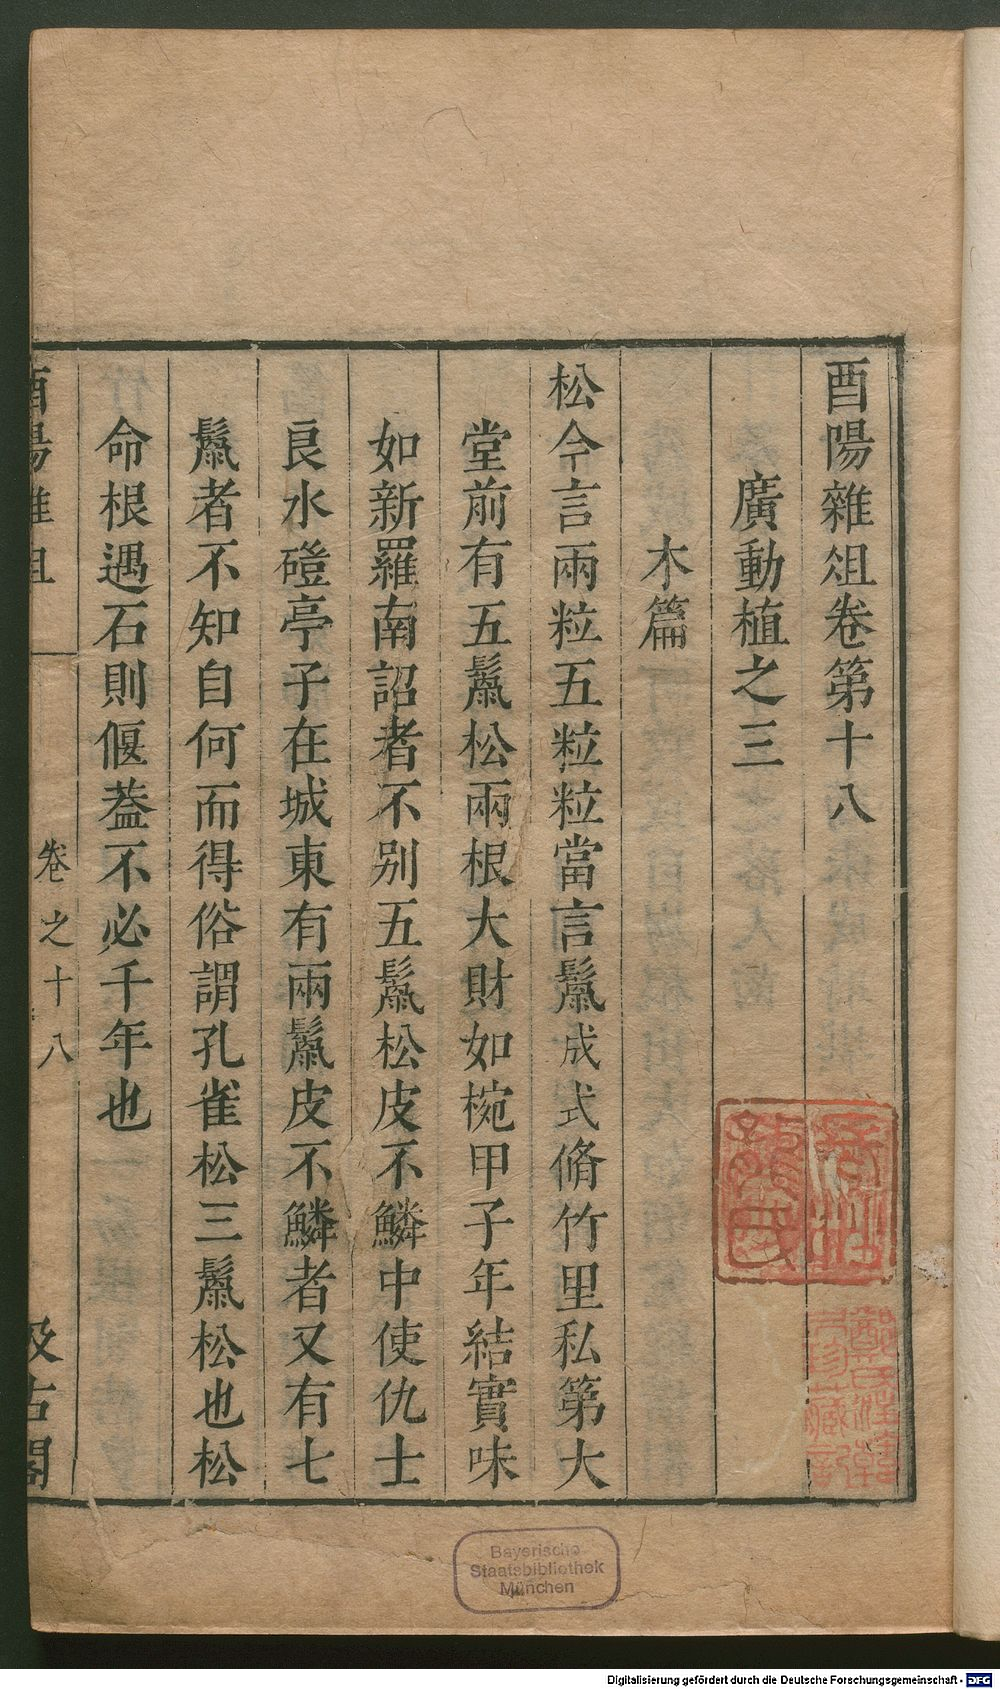 酉陽雜俎卷第十八
廣動植之三
木篇
松今言兩粒五粒粒當言鬣成式脩竹里私第大
堂前有五鬣松兩根大財如椀甲子年結實味
如新羅南詔者不别五鬣松皮不鱗中使仇士
良水磑亭子在城東有兩鬣皮不鱗者又有七
鬣者不知自何而得俗謂孔雀松三鬣松也松
命根遇石則偃葢不必千年也
酉陽雜俎
卷之十八
汲古閣
Bayerische
Staatsbibliothek
München
Digitalisierung gefördert durch die Deutsche Forschungsgemeinschaft - DFG